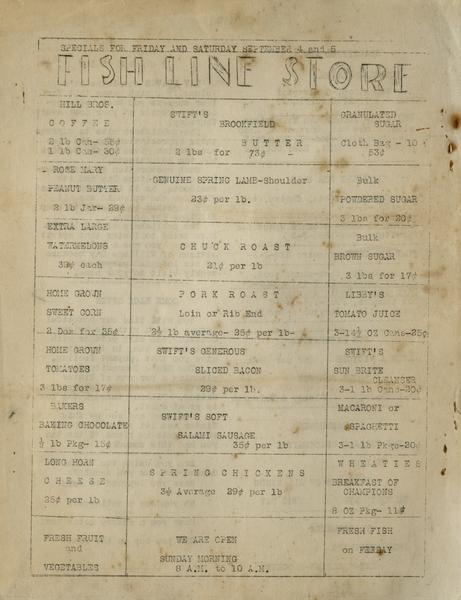 SPECIALS FOR FRIDAY AND SATURDAY SEPTEMBER 4 and 5
FISH LINE STORE
HILL BROS.
COFFEE
2 lb Can- 58¢
1 lb Can- 30¢
SWIFT'S
BROOKFIELD
BUTTER
2 lbs for 73¢ -
GRANULATED
SUGAR
Cloth Bag - 10
53¢
ROSE MARY
PEANUT BUTTER
2 lb Jar- 29¢
GENUINE SPRING LAMB-Shoulder
23¢ per lb.
Bulk
POWDERED SUGAR
3 lbs for 20¢
EXTRA LARGE
WATERMELONS
39¢ each
CHUCK ROAST
21¢ per lb
Bulk
BROWN SUGAR
3 lbs for 17¢
HOME GROWN
SWEET CORN
2 Doz for 25¢
PORK ROAST
Loin or Rib End
2½ lb average- 25¢ per lb-
LIBBY'S
TOMATO JUICE
3-14½ OZ Cans-25¢
HOME GROWN
TOMATOES
3 lbs for 17¢
SWIFT'S GENEROUS
SLICED BACON
29¢ per lb.
SWIFT'S
SUN BRITE
CLEANSER
3-1 lb Cans-20¢
BAKERS
BAKING CHOCOLATE
½ lb Pkg- 15¢
SWIFT'S SOFT
SALAMI SAUSAGE
35¢ per lb
MACARONI or
SPAGHETTI
3-1 lb Pkgs-20¢
LONG HORN
CHEESE
25¢ per lb
SPRING CHICKENS
3½ Average 29¢ per lb
WHEATIES
BREAKFAST OF
CHAMPIONS
8 OZ Pkg- 11¢
FRESH FRUIT
and
VEGETABLES
WE ARE OPEN
SUNDAY MORNING
8 A.M. to 10 A.M.
FRESH FISH
on FRIDAY